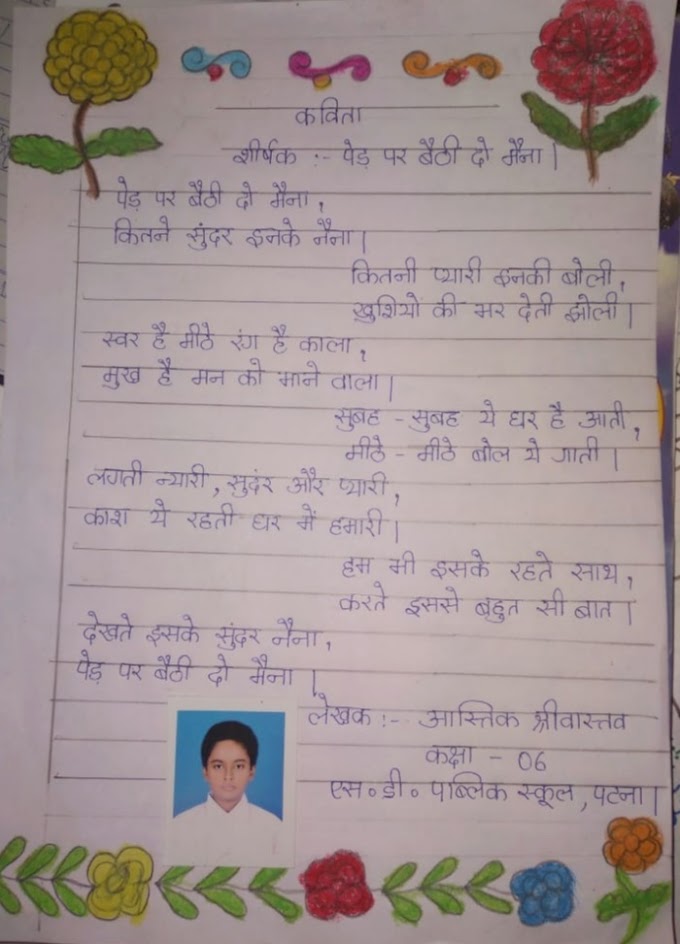 कविता
शीर्षक :- पेड़ पर बैठी दो मैना।
पेड़ पर बैठी दो मैना,
कितने सुंदर इनके नैना।
कितनी प्यारी इनकी बोली,
खुशियों की भर देती झोली।
स्वर है मीठे रंग है काला,
मुख है मन को भाने वाला।
सुबह - सुबह ये घर है आती,
मीठे - मीठे बोल ये गाती।
लगती न्यारी, सुदंर और प्यारी,
काश ये रहती घर में हमारी।
हम भी इसके रहते साथ,
करते इससे बहुत सी बात।
देखते इसके सुंदर नैना,
पेड़ पर बैठी दो मैना।
लेखक :- आस्तिक श्रीवास्तव
कक्षा - 06
एस॰ डी॰ पाब्लिक स्कूल, पटना।